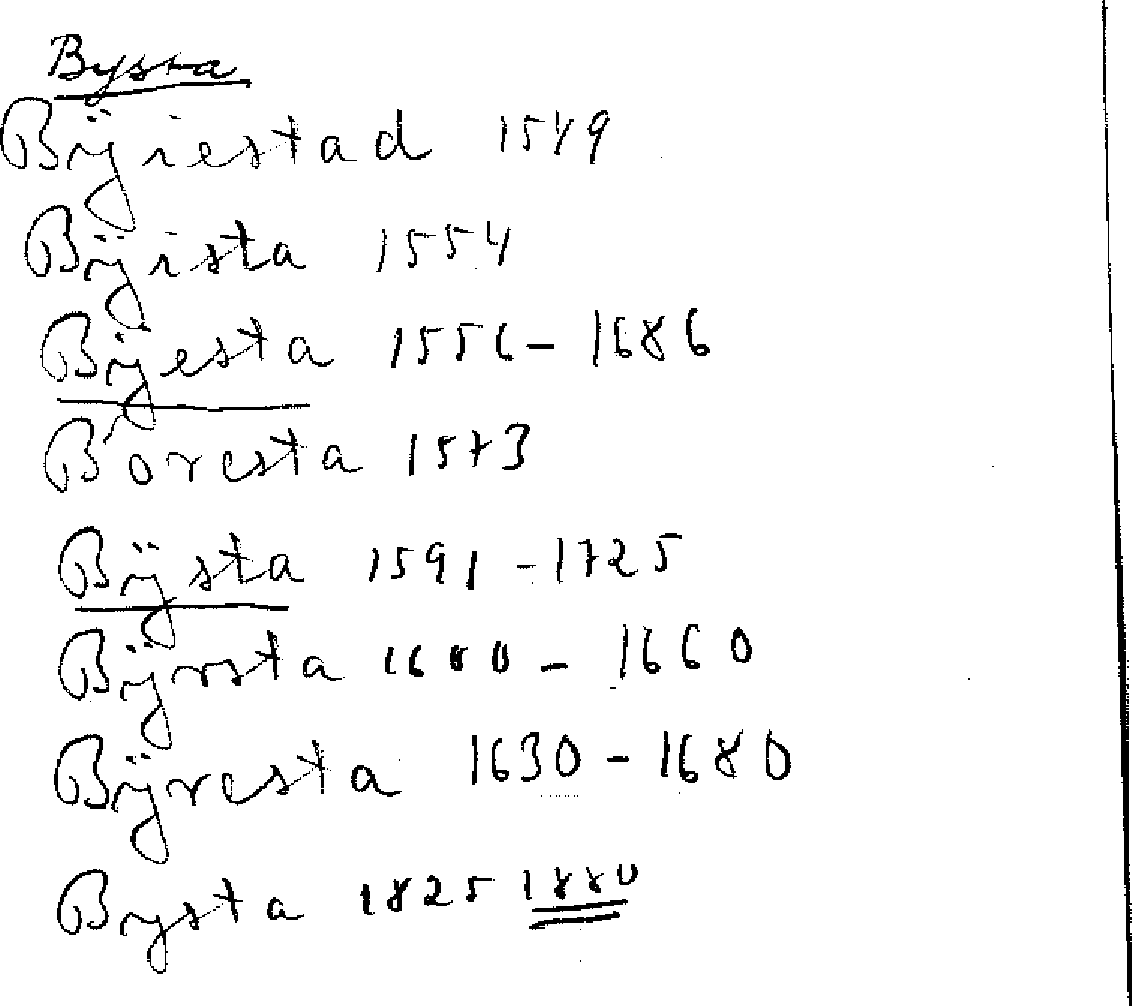 Bysta
Bÿiestad 1549
Bÿista 1554
Bÿesta 1556 - 1686
Boresta 1573
Bÿsta 1591 - 1725
Bÿrsta 1600 - 1660
Bÿresta 1630 - 1680
Bysta 1825 1880